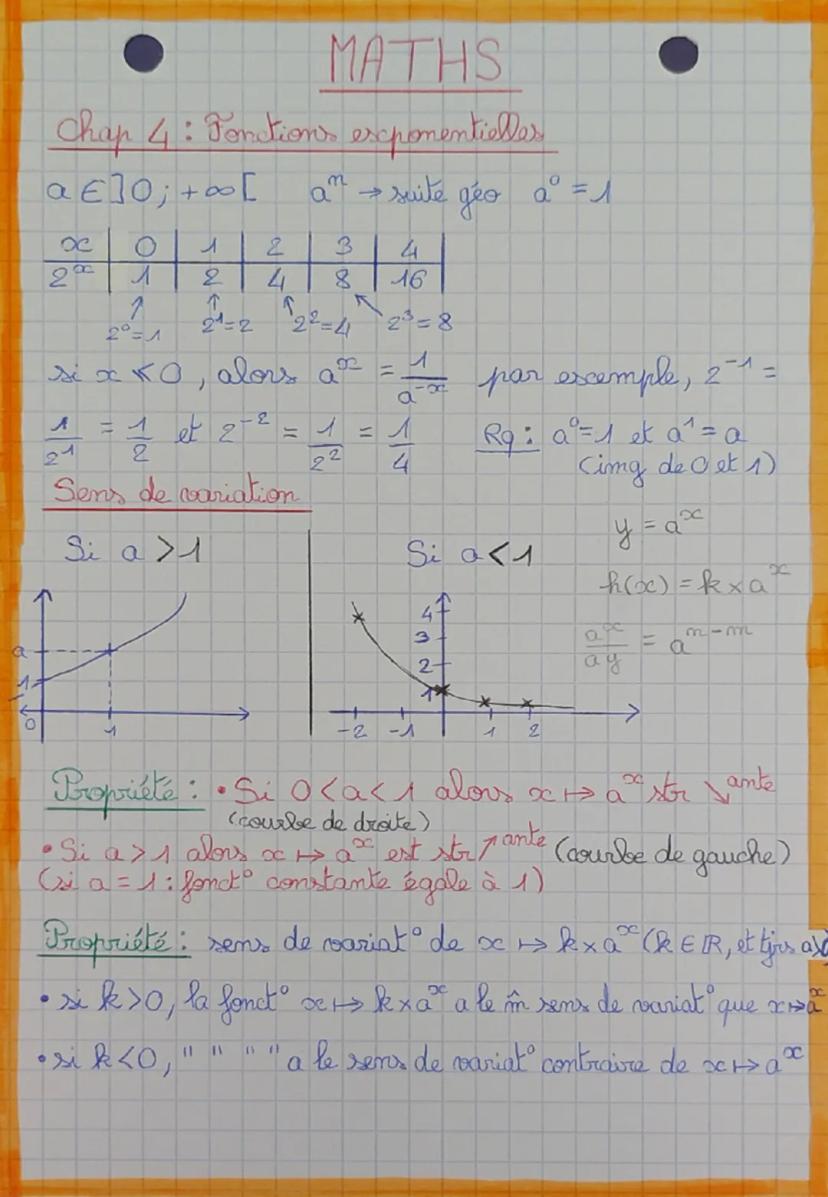 MATHS
Chap 4 : Fonctions exponentielles
a ∈ ]0 ; +∞[ aⁿ → suite géo a⁰ = 1
x | 0 | 1 | 2 | 3 | 4
2ˣ | 1 | 2 | 4 | 8 | 16
2⁰=1 2¹=2 2²=4 2³=8
si x < 0, alors aˣ = 1/a⁻ˣ par exemple, 2⁻¹ =
1/2¹ = 1/2 et 2⁻² = 1/2² = 1/4 Rq : a⁰=1 et a¹=a
(img de 0 et 1)
Sens de variation
y = aˣ
Si a > 1 Si a < 1
h(x) = k × aˣ
aˣ/aʸ = aⁿ⁻ᵐ
a 1 0 1
4 3 2 1 -2 -1 1 2
Propriété : • Si 0 < a < 1 alors x ↦ aˣ str ↘ante
(courbe de droite)
• Si a > 1 alors x ↦ aˣ est str ↗ante (courbe de gauche)
(si a = 1 : fonct° constante égale à 1)
Propriété : sens de variat° de x ↦ k × aˣ (k ∈ ℝ, et tjrs a>0
• si k > 0, la fonct° x ↦ k × aˣ a le m̂ sens de variat° que x ↦ aˣ
• si k < 0, " " " " a le sens de variat° contraire de x ↦ aˣ